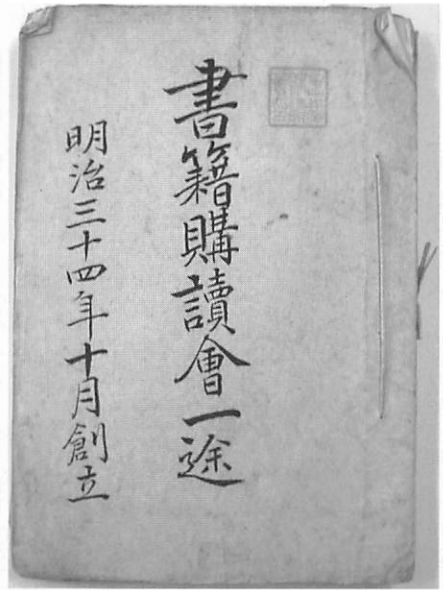 書籍購讀會一途
明治三十四年十月創立